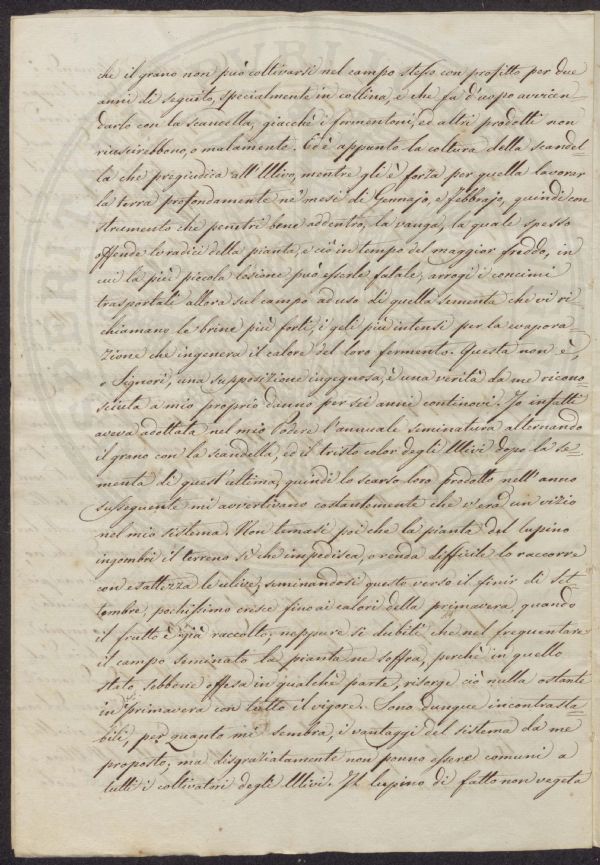 che il grano non può coltivarsi nel campo stesso con profitto per due
anni di seguito, specialmente in collina, e che fa d'uopo avvicen=
darlo con la scandella, giacchè i formentoni, ed altri prodotti non
riuscirebbono, o malamente. Ed è appunto la coltura della scandel=
la che pregiudica all'Ulivo, mentre gli è forza per quella lavorar
la terra profondamente ne' mesi di Gennajo, e Febbrajo, quindi con
strumento che penetri bene addentro, la vanga, la quale spesso
offende le radici della pianta, e ciò in tempo del maggior freddo, in
cui la più piccola lesione può esserle fatale, arrogi i concimi
trasportati allora sul campo ad uso di quella semente che vi ri=
chiamano le brine più forti, i geli più intensi per la evapora=
zione che ingenera il calore del loro fermento. Questa non è,
o Signori, una supposizione ingegnosa, è una verità da me ricono=
sciuta a mio proprio danno per sei anni continovi. Io infatti
aveva adottata nel mio Podere l'annuale seminatura alternando
il grano con la scandella, ed il tristo color degli Ulivi dopo la se=
menta di quest'ultima, quindi lo scarso loro prodotto nell'anno
susseguente mi avvertivano costantemente che v'era un vizio
nel mio sistema. Non temasi poi che la pianta del lupino
ingombri il terreno sì che impedisca, o renda difficile lo raccorre
con esattezza le ulive, seminandosi questo verso il finir di Set=
tembre pochissimo cresce fino ai calori della primavera, quando
il frutto è già raccolto, neppure si dubiti che nel frequentare
il campo seminato la pianta ne soffra, perchè in quello
stato, sebbene offesa in qualche parte, risorge ciò nulla ostante
in primavera con tutto il vigore. Sono dunque incontrasta=
bili, per quanto mi sembra, i vantaggi del sistema da me
proposto, ma disgraziatamente non ponno essere comuni a
tutti i coltivatori degli Ulivi. Il lupino di fatto non vegeta